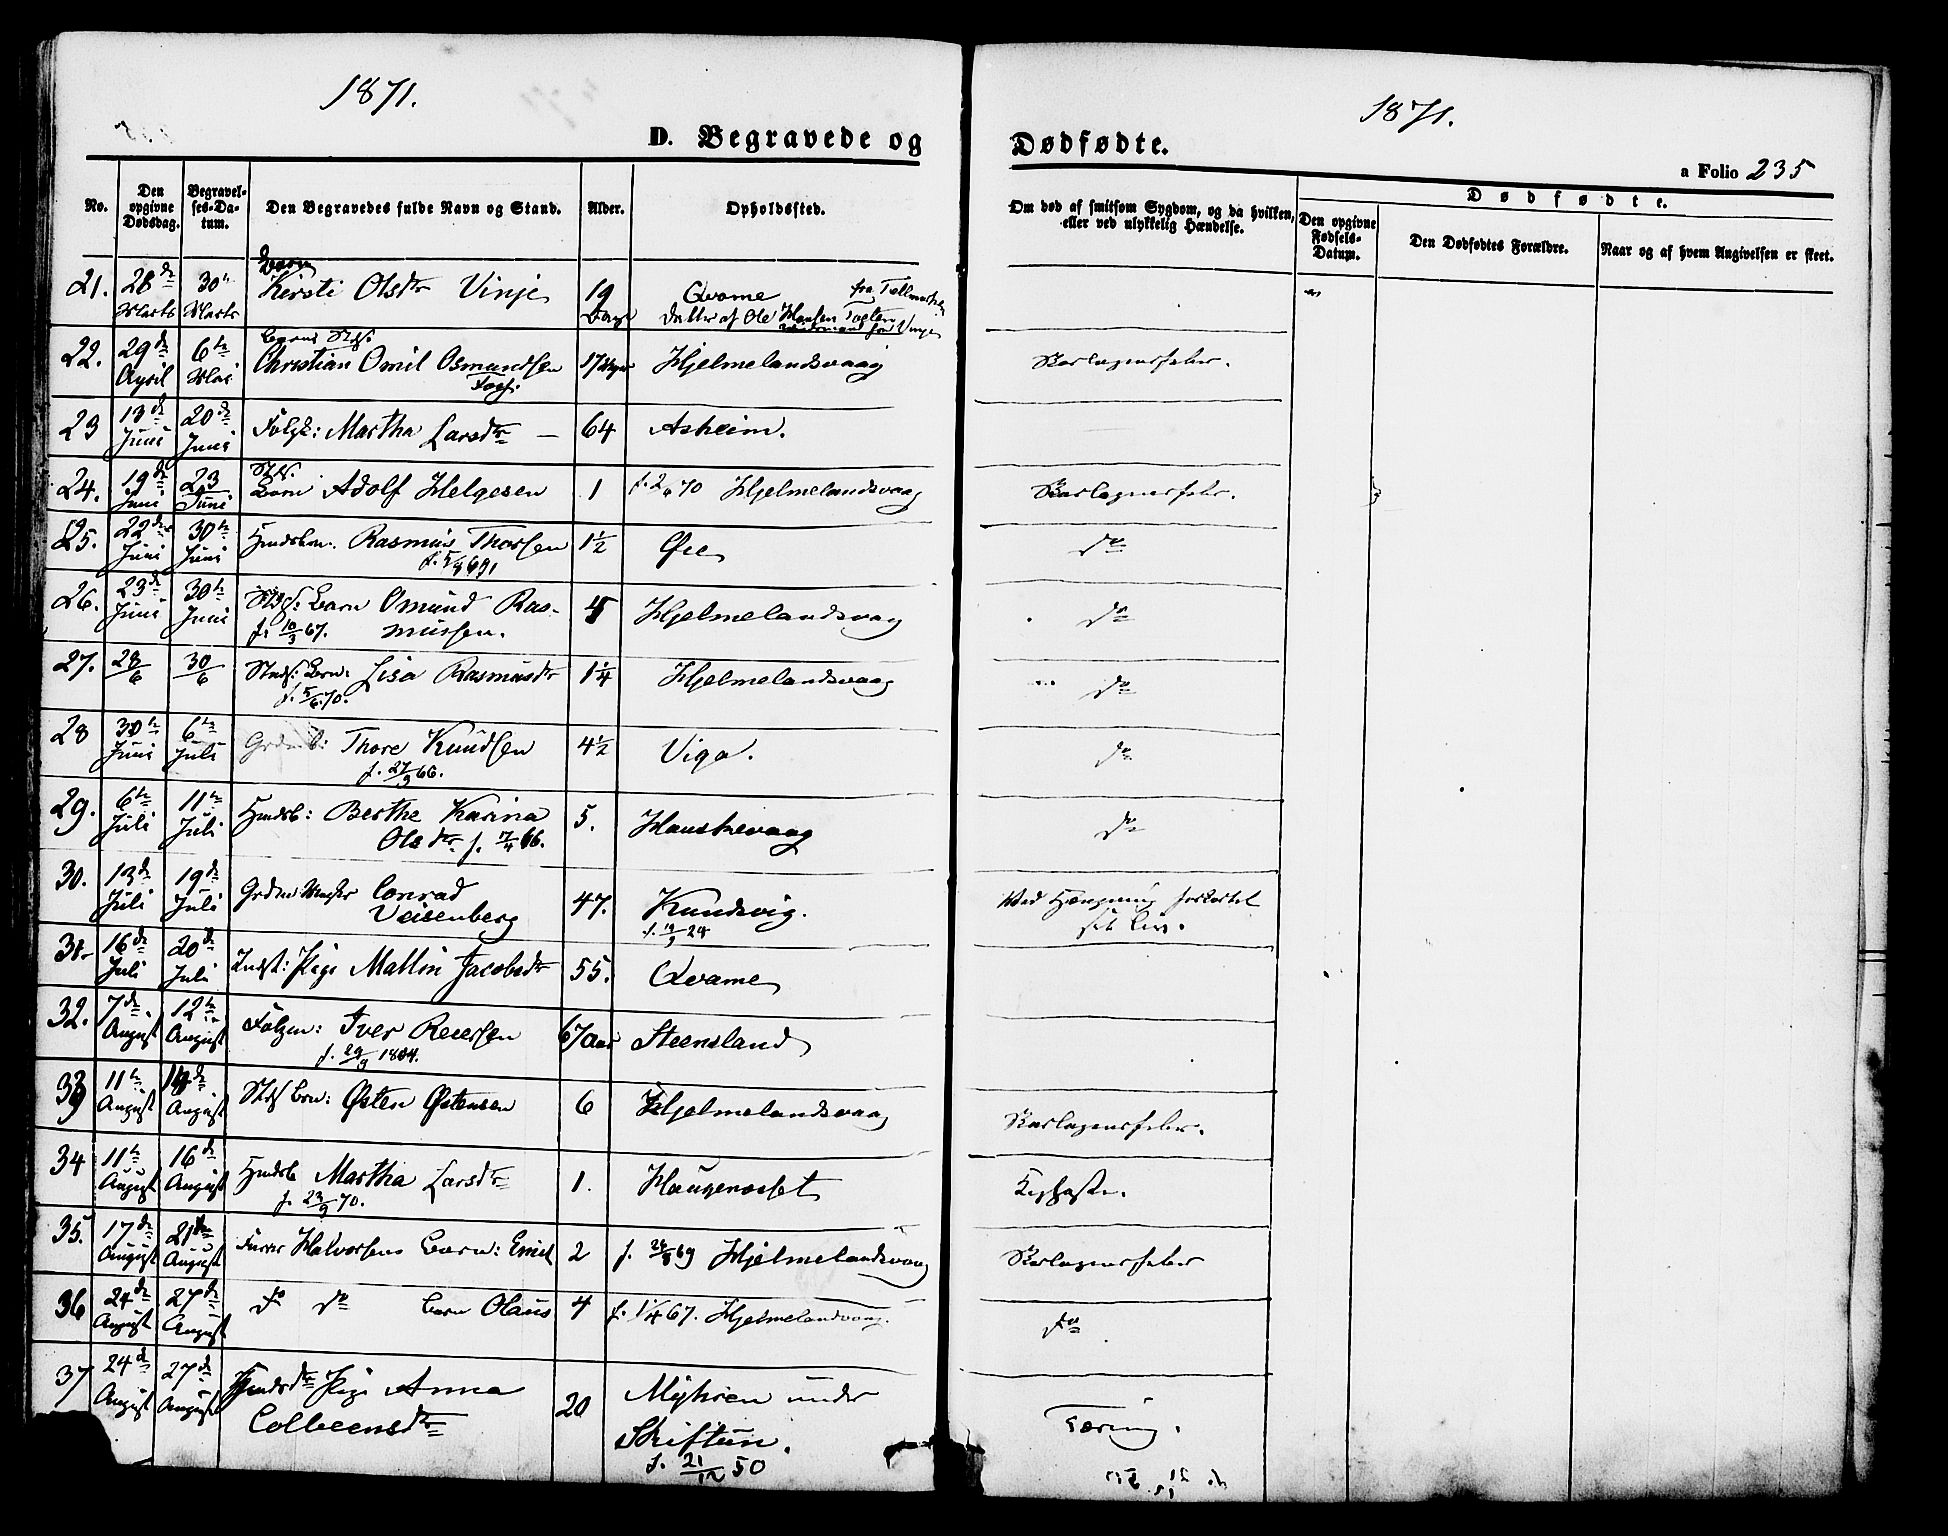 1871.
D. Begravede og
No.
Den opgivne Dødsdag.
Begravelses-Datum.
Den Begravedes fulde Navn og Stand.
Alder.
Opholdssted.
21. 28de Marts 30te Marts Barn Kirsti Olsdtr Vinje 19 Dage Qvame fra Tellemarken
Datter af Ole Hansen
22. 29de April 6te Mai Christian Omil Osmundsen 17 Hjelmelandsvaag
23 13de Juni 20de Juni Martha Larsdtr — 64 Asheim.
24. 19de Juni 23 Juni Barn Adolf Helgesen 1 f. 70 Hjelmelandsvaag
25. 22de Juni 30te Juni Rasmus Thorsen 1½ Øie
26. 23de Juni 30te Juni Barn Omund Ras-
f. 10/3 67. mussen. 4 Hjelmelandsvaag
27. 28/6 30/6 Barn: Lisa Rasmusdtr 1¼ Hjelmelandsvaag
f. 5/6 70.
28 30te Juni 6te Juli Thore Knudsen 4½ Viga.
f. 27/9 66.
29. 6te Juli 11te Juli Husmdsb: Berthe Karina 5. Hauskevaag
Olsdtr f. 7/4 66.
30. 13de Juli 19de Juli Conrad
Veisenberg 47. Knudsvig.
f. 19/9 24
31. 16de Juli 20de Juli Indst: Pige Mallin Jacobsdtr 55. Qvame
32. 7de August 12te August Iver Reiersen 67 Aar Steensland
f. 29/9 1804.
33 11te August 14de August Barn: Østen Østensen 6 Hjelmelandsvaag
34 11te August 16de August Martha Larsdtr 1. Haugenæsset
f. 23/9 70.
35. 17de August 21de August Halvorsens Barn: Emil 2 f. 69 Hjelmelandsvaag
36 24de August 27de August do do Barn Olaus 4 f. 1/4 67. Hjelmelandsvaag.
37 24de August 27de August Pige Anna
Colbeensdtr 20 Myhren under
Skiftun.
f. 21/12 50
1871.
Dødfødte.
a Folio 235
Om død af smitsom Sygdom, og da hvilken,
eller ved ulykkelig Hændelse.
Dødfødte.
Den opgivne Fødsels-Datum.
Den Dødfødtes Forældre.
Naar og af hvem Angivelsen er skeet.
Skarlagensfeber.
Skarlagensfeber.
do
do
do
do
do
Ved Hængning forkortet
sit Liv.
Skarlagensfeber.
Kighoste.
Skarlagensfeber
do
Tæring.